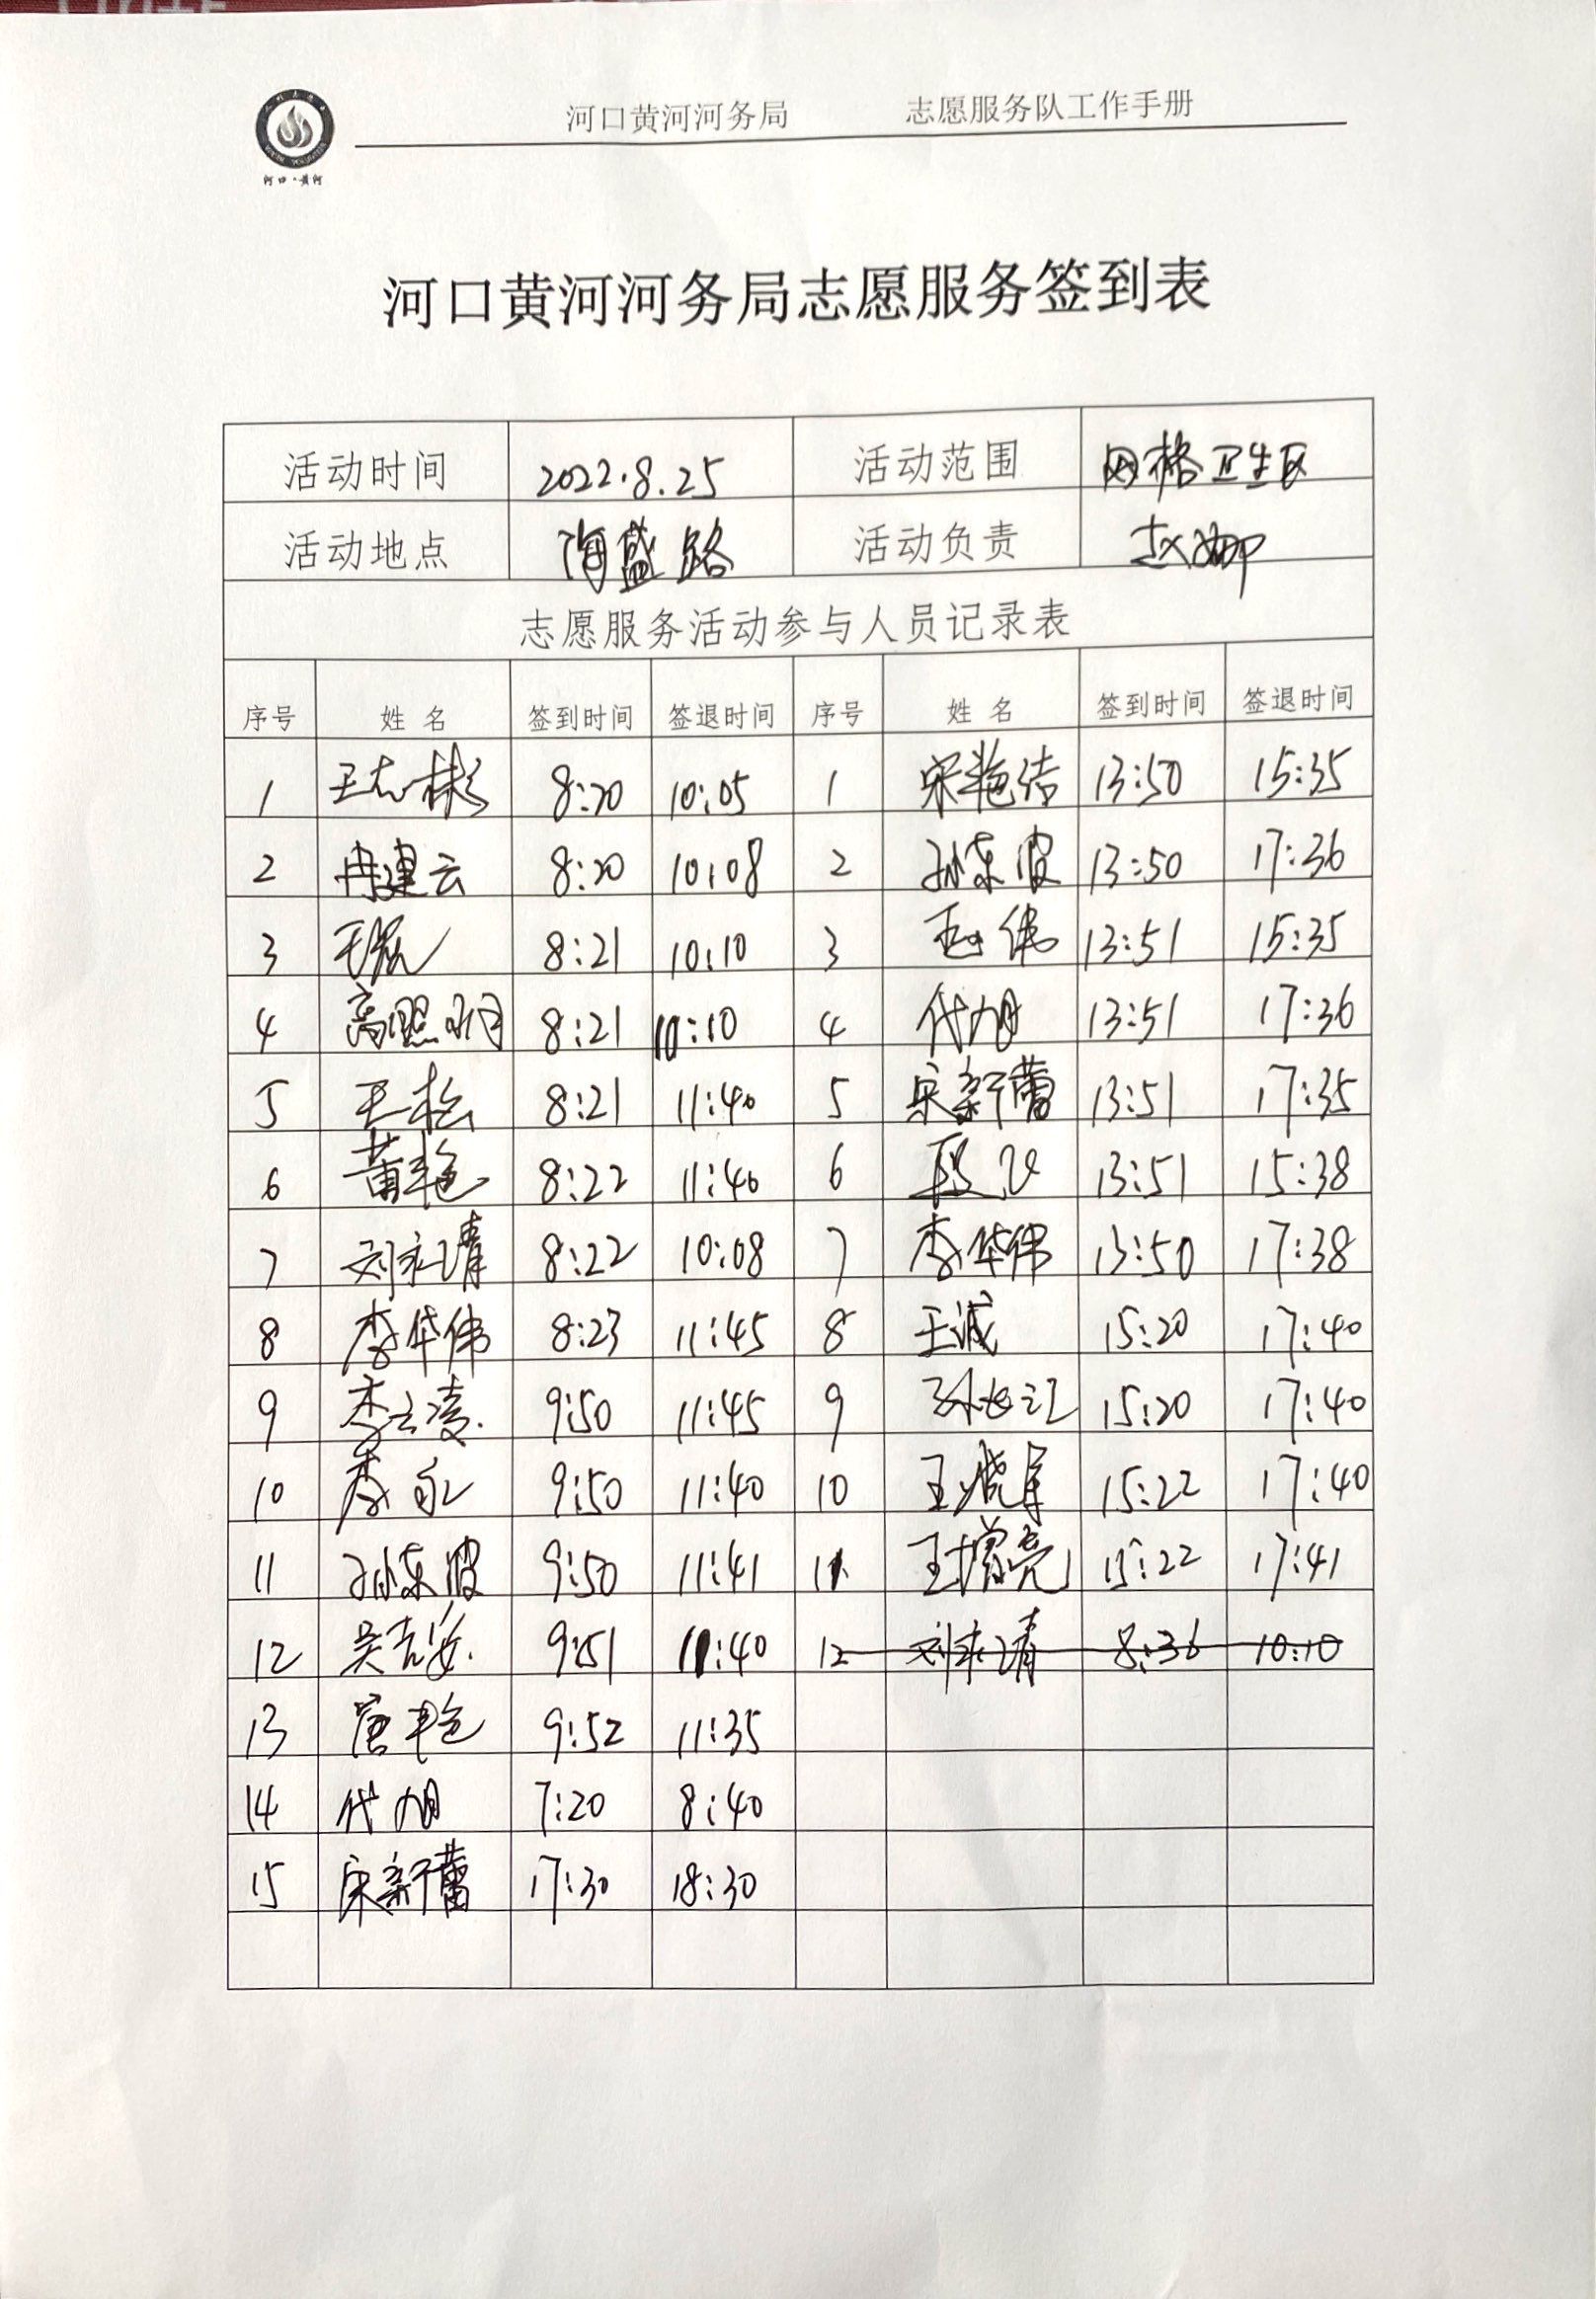 河口黄河河务局 志愿服务队工作手册
河口·黄河
河口黄河河务局志愿服务签到表
活动时间 2022.8.25 活动范围 网格卫生区
活动地点 海盛路 活动负责 赵娜
志愿服务活动参与人员记录表
序号 姓名 签到时间 签退时间 序号 姓名 签到时间 签退时间
1 王志彬 8:20 10:05 1 宋艳洁 13:50 15:35
2 冉建云 8:20 10:08 2 孙东波 13:50 17:36
3 8:21 10:10 3 13:51 15:35
4 高照明 8:21 11:10 4 代旭 13:51 17:36
5 王松 8:21 11:40 5 宋新蕾 13:51 17:35
6 黄艳 8:22 11:40 6 段飞 13:51 15:38
7 刘永清 8:22 10:08 7 李华伟 13:50 17:38
8 李华伟 8:23 11:45 8 王诚 15:20 17:40
9 李云凌 9:50 11:45 9 孙长江 15:20 17:40
10 9:50 11:40 10 15:22 17:40
11 孙东波 9:50 11:41 11 王增亮 15:22 17:41
12 吴吉安 9:51 11:40 12 刘永清 8:36 10:10
13 唐艳 9:52 11:35
14 代旭 7:20 8:40
15 宋新蕾 17:30 18:30